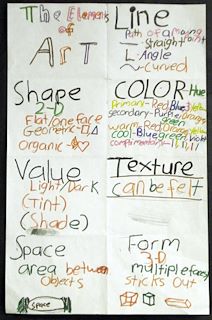 The Elements
of
Art
Line
Path of a moving point
- Straight
Angle
Curved
Shape
2-D
Flat/one face
Geometric -
organic -
COLOR Hue
Primary- Red Blue Yellow
secondary- Purple/Orange
Green
warm- Red Orange Yellow
cool- Blue green violet
complimentary-
Value
Light/Dark
(Tint)
(Shade)
Texture
can be felt
Space
area between
Objects
Space
Form
3-D
multiple faces
sticks Out